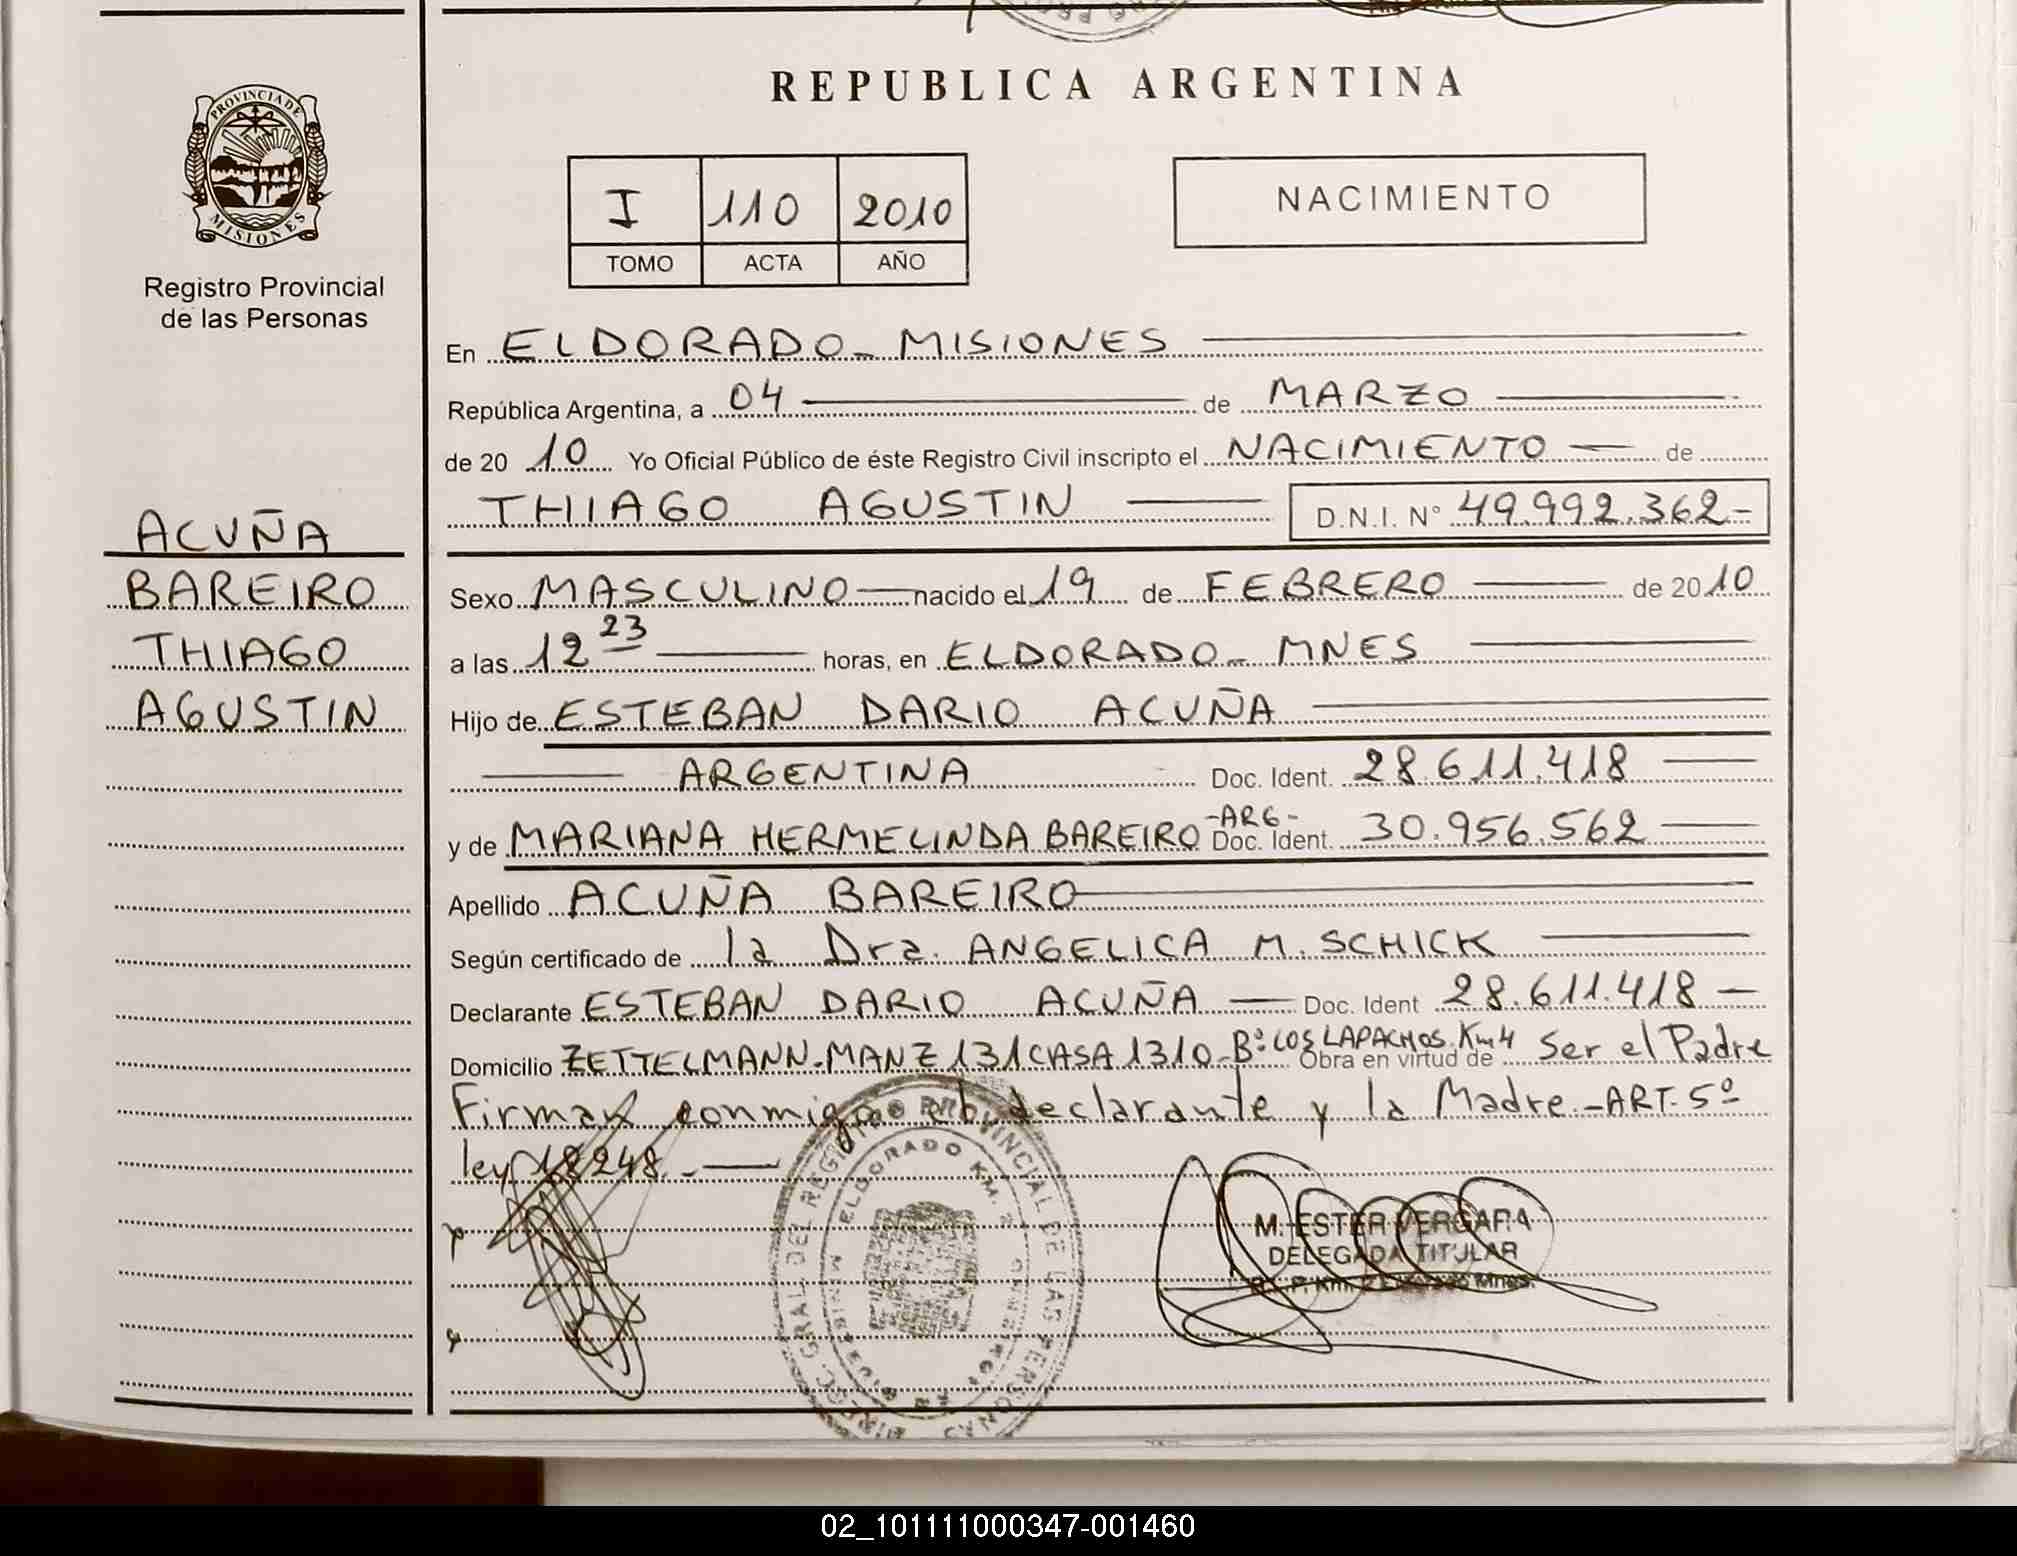 REPUBLICA ARGENTINA
PROVINCIA DE
MISIONES
Registro Provincial
de las Personas
I 110 2010
TOMO ACTA AÑO
NACIMIENTO
En ELDORADO - MISIONES
República Argentina, a 04 de MARZO
de 20 10 Yo Oficial Público de éste Registro Civil inscripto el NACIMIENTO de
THIAGO AGUSTIN D.N.I. N° 49.992.362-
ACUÑA
BAREIRO
THIAGO
AGUSTIN
Sexo MASCULINO nacido el 19 de FEBRERO de 2010
a las 12 23 horas, en ELDORADO - MNES
Hijo de ESTEBAN DARIO ACUÑA
ARGENTINA Doc. Ident. 28.611.418
y de MARIANA HERMELINDA BAREIRO -ARG- Doc. Ident. 30.956.562
Apellido ACUÑA BAREIRO
Según certificado de la Dra. ANGELICA M. SCHICK
Declarante ESTEBAN DARIO ACUÑA Doc. Ident 28.611.418
Domicilio ZETTELMANN-MANZ 131 CASA 1310-Bº LOS LAPACHOS. Km 4 Obra en virtud de Ser el Padre
Firman conmigo el declarante y la Madre.-ART. 5º
ley 18248.-
DIREC. GRAL. DEL REGISTRO PROVINCIAL DE LAS PERSONAS
ELDORADO KM. 2
MISIONES
M. ESTER VERGARA
DELEGADA TITULAR
02_101111000347-001460